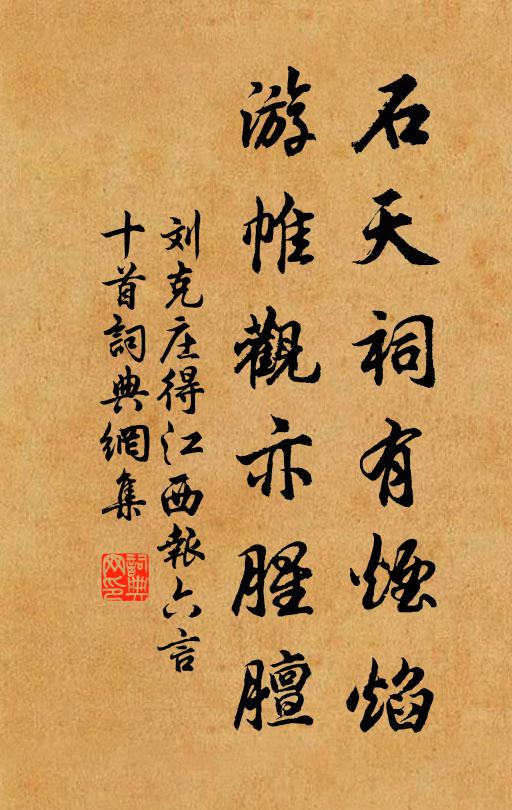 石天祠有煙焰
游帷觀亦腥膻
刘克庄得江西報六言
十首詞典網集
詞典网印